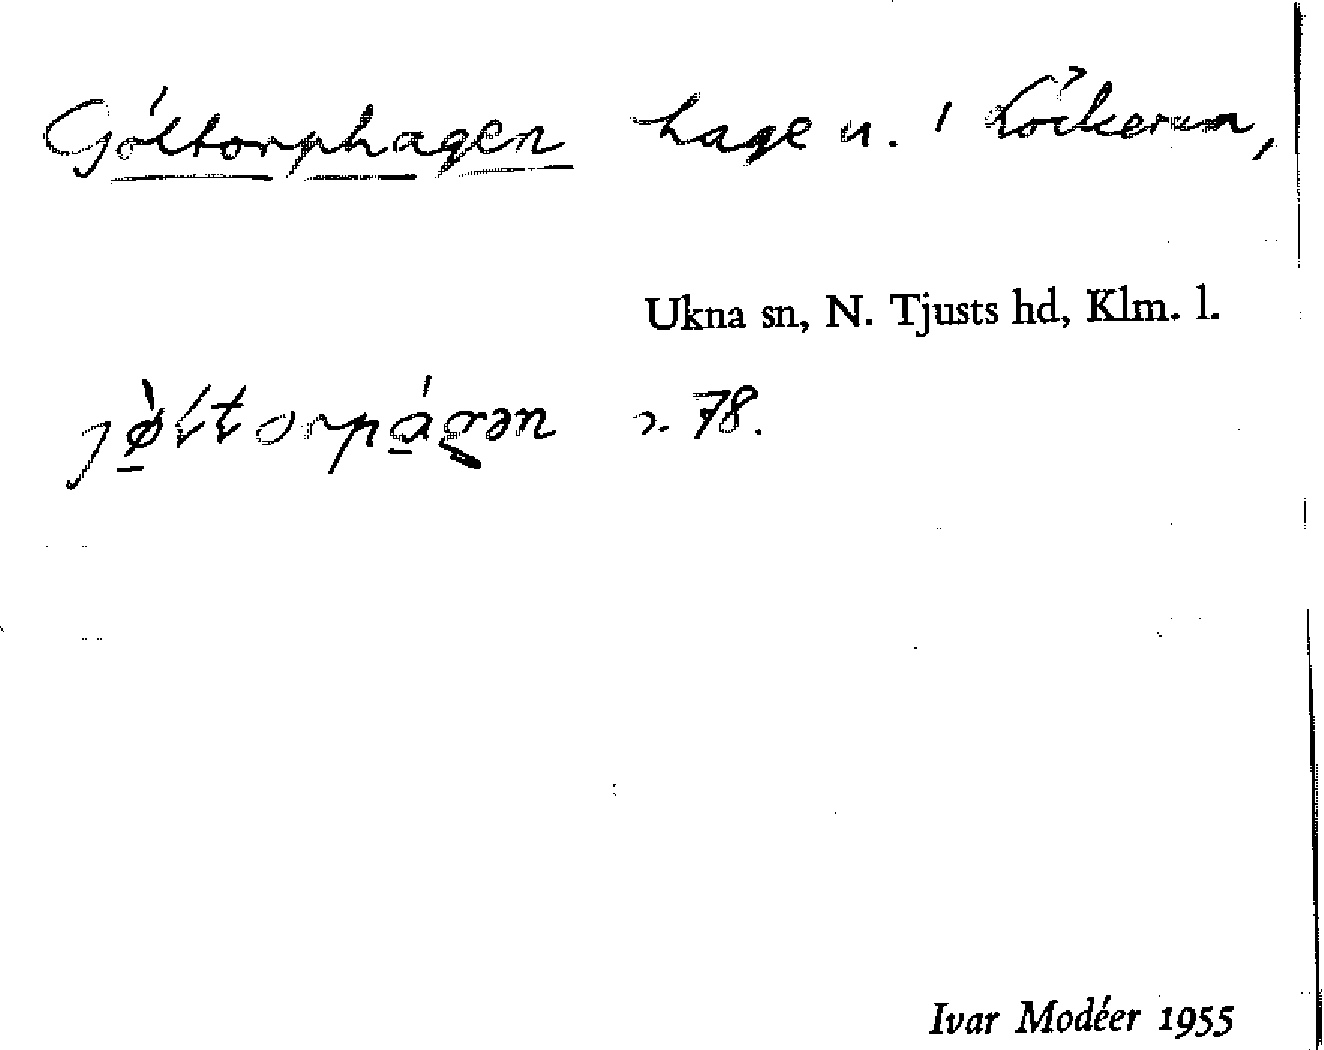 Göltorphagen hage n. i Löckerum,
Ukna sn, N. Tjusts hd, Klm. l.
s. 78.
Ivar Modéer 1955